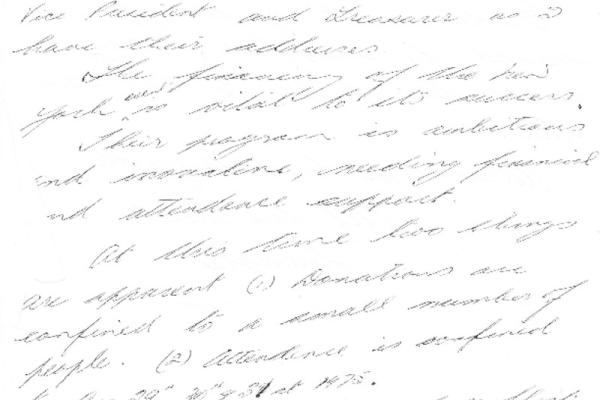 Vice President and Treasurer as I
have their addresses
The financing of the New
York event is vital to its success.
Their program is ambitious
and inovative, needing financial
and attendance support.
At this time two things
are apparent (1) Donations are
confined to a small number of
people. (2) Attendance is confined
29th 30th & 31 at 1975.